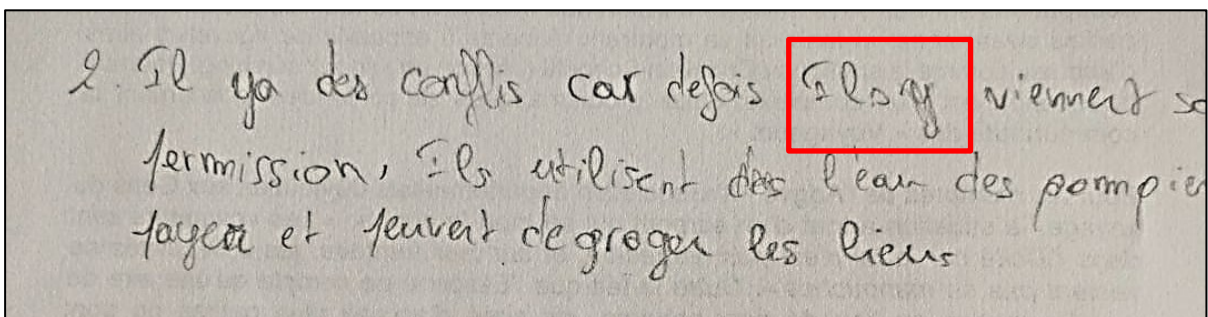 2. Il ya des conflis car defois Ils y viennent sa
permission, Ils utilisent des l'eau des pompie
payer et peuvent degroger les liens